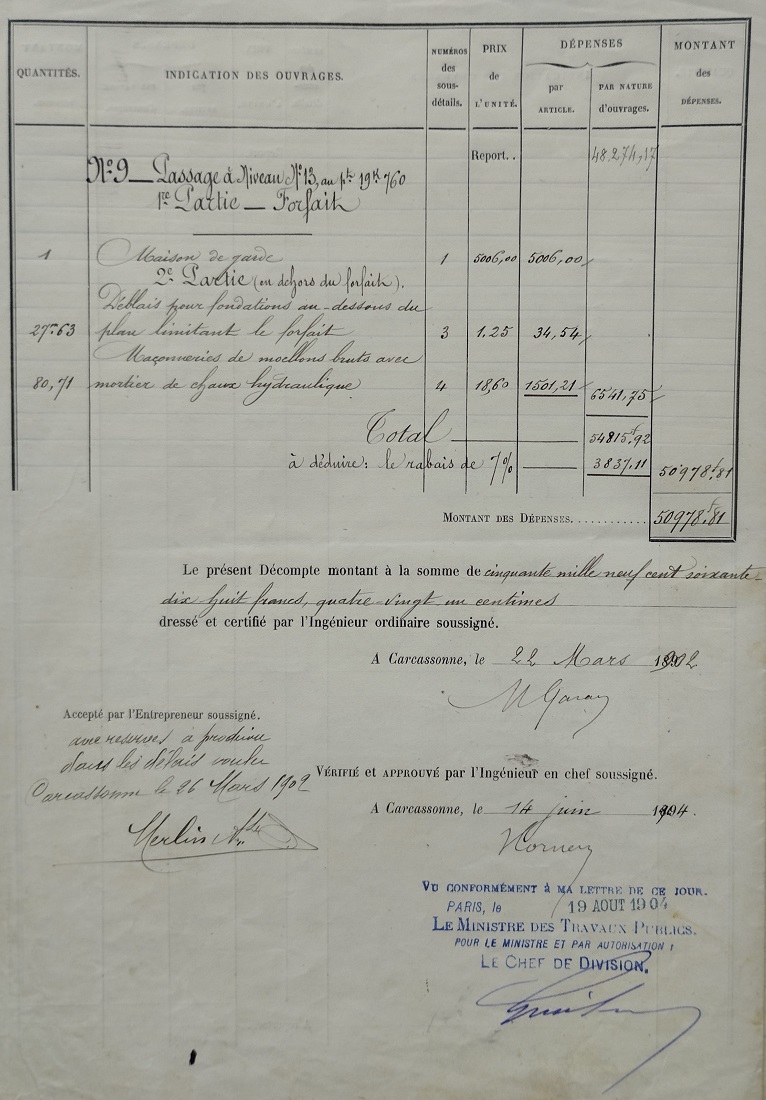 QUANTITÉS. INDICATION DES OUVRAGES. NUMÉROS des sous-détails. PRIX de L'UNITÉ. DÉPENSES par ARTICLE. PAR NATURE d'ouvrages. MONTANT des DÉPENSES.
Report.. 48.274,17
N° 9 — Passage à Niveau N° 13, au pt 19k 760
1re Partie — Forfait
1 Maison de garde 1 5006,00 5006,00
2e Partie (en dehors du forfait).
Déblais pour fondations au-dessous du
27m63 plan limitant le forfait 3 1.25 34,54
Maçonneries de moellons bruts avec
80,71 mortier de chaux hydraulique 4 18,60 1501,21 6541,75
Total 54815f92
à déduire: le rabais de 7% 3837.11 50978f81
MONTANT DES DÉPENSES. 50978f81
Le présent Décompte montant à la somme de cinquante mille neuf cent soixante-
dix huit francs, quatre-vingt un centimes
dressé et certifié par l'Ingénieur ordinaire soussigné.
A Carcassonne, le 22 Mars 1902
Accepté par l'Entrepreneur soussigné.
avec reserves à produire
dans les délais voulu
Carcassonne le 26 Mars 1902
Merlin
VÉRIFIÉ et APPROUVÉ par l'Ingénieur en chef soussigné.
A Carcassonne, le 14 juin 1904.
VU CONFORMÉMENT à MA LETTRE DE CE JOUR.
PARIS, le 19 AOUT 1904
LE MINISTRE DES TRAVAUX PUBLICS.
POUR LE MINISTRE ET PAR AUTORISATION :
LE CHEF DE DIVISION.